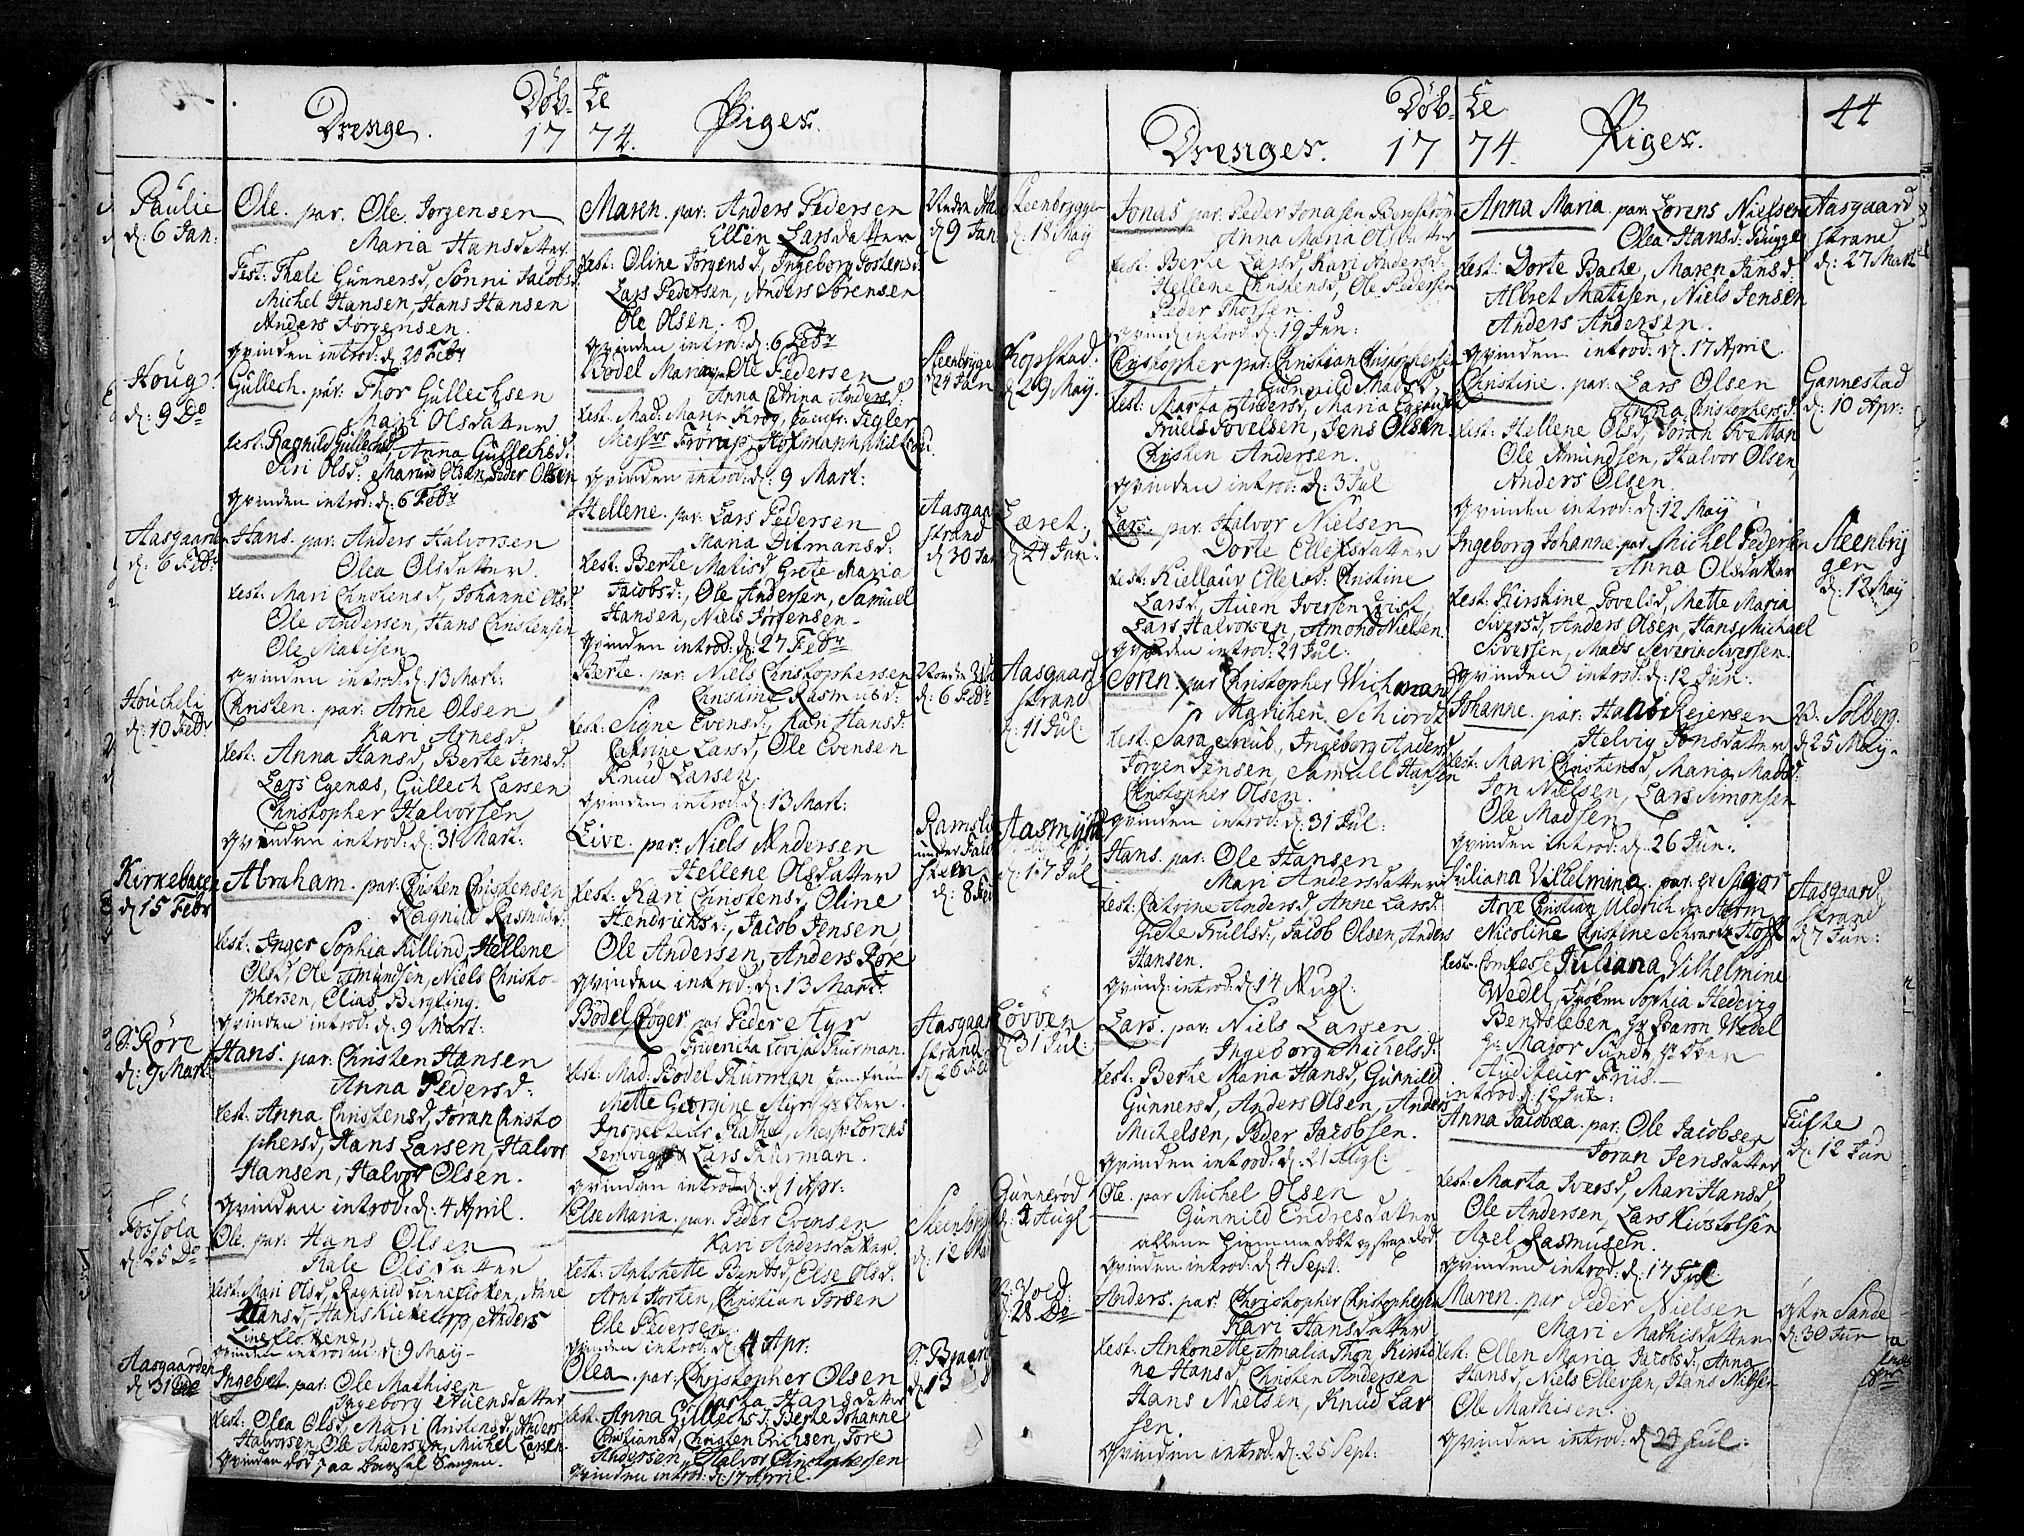 Døb-
te
Drenge.
17
74.
Piger.
Paulie
d: 6 Jan:
Ole. par. Ole Jørgensen
Maria Hansdatter
Test: Thale Gunnersd, Sønni Jacobsd
Michel Hansen, Hans Hansen
Anders Jørgensen.
qvinden introd: d: 20 Febr
Houg.
d: 9 Do
Gullech. par: Thor Gullechsen
Mari Olsdatter
test: Ragnild Gullechsd, Anna Gullechsd:
Siri Olsd: Peder Olsen
qvinden introd: d: 6 Febr
Aasgaarden
d: 6 Febr
Hans. par: Anders Halvorsen
Olea Olsdatter.
test: Mari Christensd, Johanne Olsd
Ole Andersen, Hans Christensen
Ole Matisen
qvinden introd: d: 13 Mart:
Houcheli
d: 10 Febr
Christen. par: Arne Olsen
Kari Arnesd.
test: Anna Hansd, Berte Jensd.
Lars Egenæs, Gullech Larsen
Christopher Halvorsen
qvinden introd: d: 31 Mart:
Kirkebacen
d: 15 Febr
Abraham. par: Christen Christensen
Ragnild Rasmusd:
test: Inger Sophia Killind, Hellene
Olsd, Ole Amundsen, Niels Christo-
phersen, Elias Bergling.
qvinden introd: d: 9 Mart:
S: Røre
d: 9 Mart:
Hans. par: Christen Hansen
Anna Pedersd:
test: Anna Christensd, Joran Christo
phersd, Hans Larsen, Halvor
Hansen, Halvor Olsen.
qvinden introd: d: 4 April.
Fossola
d: 25 Do
Ole. par: Hans Olsen
Kale Olsdatter
test: Mari Olsd, Ragnild Linneflotten, Anne
Hansd, Hans Kickestorp, Anders
Lineflottene
qvinden introd: d: 9 Maij
Aasgaarden
d: 31 Do
Ingebret. par: Ole Mathisen
Ingeborg Evensdatter
test: Olea Olsd, Mari Christensd, Anders
Halvorsen, Ole Andersen, Michel Larsen
qvinden død paa barsel sengen.
Maren. par: Anders Pedersen
Ellen Larsdatter
test: Oline Jørgensd, Ingeborg Jostensd:
Lars Pedersen, Anders Sørensen
Ole Olsen.
qvinden introd: d: 6 Febr
d: 9 Jan
Bodel Maria par: Ole Pedersen
Anna Catrina Andersd:
test: Mad: Mann Krog, Jomfr: Tegler
Messrs Frørup, Hofmann
qvinden introd: d: 9 Mart:
Steenbrygge
d: 24 Jan
Hellene. par: Lars Pedersen
Maria Ditmansd:
test: Berte Matisd Grete Maria
Jacobsd:, Ole Andersen, Samuel
Hansen, Niels Jørgensen.
qvinden introd: d: 27 Febr
Aasgaar
strand
d: 30 Jan
Berte. par: Niels Christophersen
Christine Rasmusd:
test: Signe Evensd, Kari Hansd:
Catrine Larsd, Ole Evensen
Knud Larsen.
qvinden introd: d: 13 Mart:
d: 6 Febr
Live. par: Niels Andersen
Hellene Olsdatter
test: Kari Christensd, Oline
Hendrichsd:, Jacob Jensen
Ole Andersen, Anders Røre
qvinden introd: d: 13 Mart:
Ramsli
under Fald
d: 8 Feb
Bodel Røger par: Peder Styr
Fridericha Lovisa Thurman.
test: Mad: Bodel Thurman Jomfruer
Mette Georgine Styr, Hr Ober
Inspecteur Plathe, Messr: Lorens
Lemvig & Lars Thurman.
qvinden introd: d: 1 Apr:
Aasgaar
strand
d: 26 Feb
Else Maria. par: Peder Evensen
Kari Andersdatter
test: Antonette Bentsd, Else Olsd.
Arnt Horten, Christian Torsen
Ole Pedersen.
qvinden introd: d: 4 Apr:
Steenbryg
d: 12 Mar
Olea. par: Christopher Olsen
Marta Hansdatter
test: Anna Gullechsd, Berte Johanne
Christiansd, Christen Erichsen, Tore
Andersen, Halvor Christophersen
qvinden introd: d: 17 April.
d: 13
Døb-
te
Drenger.
17
74.
Piger.
44
Steenbryggen
d: 18 Maij
Jonas par: Peder Jonasen Bergstrøm
Anna Maria Olsdatter
test: Berte Larsd, Kari Andersd.
Hellene Christensd, Ole Pedersen
Peder Thorsen.
qvinden introd: d: 19 Jun:
Kopstad.
d: 29 Maij.
Christopher par: Christian Christophersen
Gunnild Madsd.
test: Marta Andersd, Maria
Truels Povelsen, Jens Olsen
Christen Andersen.
qvinden introd: d: 3 Jul
Læret.
d: 24 Jun:
Lars. par: Halvor Nielsen
Dorte Ellefsdatter
test: Kiellaur Ellefsd: Christine
Larsd, Auen Iversen Qvist
Lars Halvorsen, Amond Nielsen
qvinden introd: 21 Jul:
Aasgaard
strand
d: 11 Jul:
Søren par Christopher Wichman
Marichen Schiordt
test: Sara Snub, Ingeborg Andersd.
Jørgen Jensen, Samuell Hansen
Christopher Olsen.
qvinden introd: d: 31 Jul:
d: 17 Jul
Hans. par: Ole Hansen
Mari Andersdatter
test: Catrine Andersd, Anne Larsd.
Grete Trullsd:, Jacob Olsen, Anders
Hansen.
qvind: introd: d 14 Augl:
Løvven
d: 31 Jul:
Lars. par: Niels Larsen
Ingeborg Michelsd:
test: Berte Maria Hansd, Gunnild
Gunnersd, Anders Olsen, Anders
Michelsen, Peder Jacobsen.
qvinden introd: d: 21 Augl:
Gunnerød
Ole. par Michel Olsen
Gunnild Endresdatter
allene hiemmedøbt og strax død.
qvinden introd: d: 4 Sept:
d: 28 Do
Anders. par: Christopher Christophersen
Kari Hansdatter
test: Antonette Amalia Thon, Kirsti
ne Hansd, Christen Andersen
Hans Nielsen, Knud Lar
sen.
qvinden introd: d: 25 Sept:
Anna Maria par: Lorens Nielsen
Olea Hansd: Bugge
test: Dorte Basse, Maren Jansd:
Albret Matisen, Niels Jensen
Anders Andersen.
qvinden introd. d: 17 April
Aasgaard
strand
d: 27 Mart
Christine. par: Lars Olsen
Anna Christophersd
test: Hellene Olsd, Joran Tvettan
Ole Amundsen, Halvor Olsen
Anders Olsen.
qvinden introd: d: 12 Maij
Gannestad
d: 10 Apr:
Ingeborg Johanne par: Michel Pedersen
Anna Olsdatter
test: Kirstine Povelsd, Mette Maria
Siversd, Anders Olsen, Hans Michael
Siversen, Mads Severin Siversen.
qvinden introd: d: 12 Jun:
Steenbrij
gen
d: 12 Maij
Johanne. par: Rejersen
Helvig Jonsdatter
test: Mari Christensd, Maria Madsd:
Jon Nielsen, Lars Simonsen
Ole Madsen
qvinden introd: d: 26 Jun:
Solberg.
d: 25 Maij
Juliana Vilhelmina. par: Hr Major
Arve Christian Uldrich da Storm
Nicoline Christine Schwartzkopf
test: Comtesse Juliana Vilhelmine
Wedel, Frøken Sophia Hedevig
Bendtsleben Hr Baron Wedel
Hr Major Sundt, Hr Ober
Auditeur Friis.
introd: d: 12 Jul:
Aasgaard
strand
d: 7 Jun:
Anna Jacobæa. par: Ole Jacobsen
Joran Jensdatter
test: Marta Iversd, Mari Hansd,
Ole Andersen, Lars Kiøstolsen
Axel Rasmusen.
qvinden introd: d: 17 Jul
Tufte
d: 12 Jun
Maren. par Peder Nielsen
Mari Mathisdatter
test: Ellen Maria Jacobsd, Anna
Hansd, Niels Ellevsen, Hans Nilsen
Ole Mathisen.
qvinden introd: d 24 Jul:
Sande
d: 30 Jun